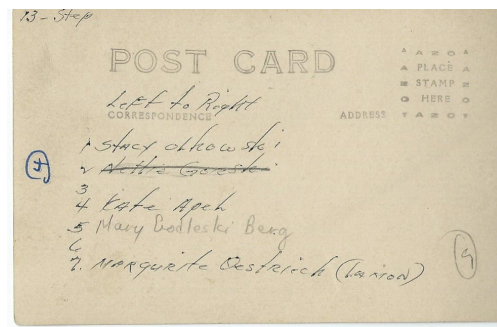 13 - Step
POST CARD
AZO
PLACE
STAMP
HERO
AZO
Left to Right
CORRESPONDENCE
ADDRESS
1 Stacy Olkowski
2 Nettie
3
4 Kate Apeh
5 Mary Godleski Berg
6
7. MARgurite Oestriech (Larion)
4
9